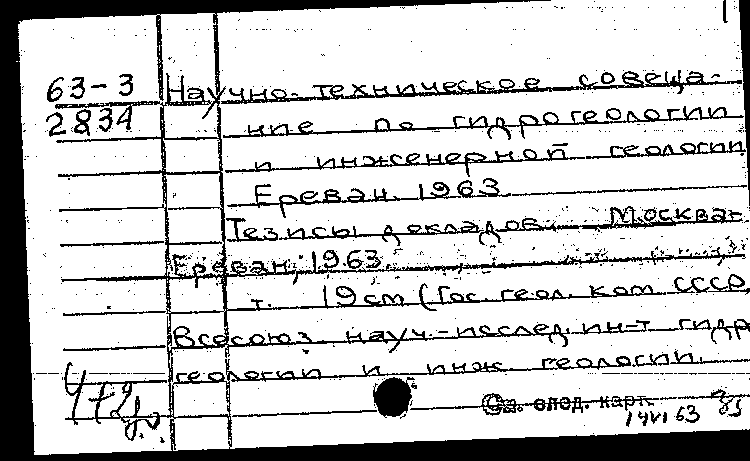 63-3
2834
Научно-техническое совеща-
ние по гидрогеологии
и инженерной геологии
Ереван. 1963.
Тезисы докладов. Москва-
Ереван, 1963.
т. 19 см (Гос. геол. ком СССР,
Всесоюз. науч.-исслед. ин-т гидро
геологии и инж геологии.
См. след. карт.
14 VI 63